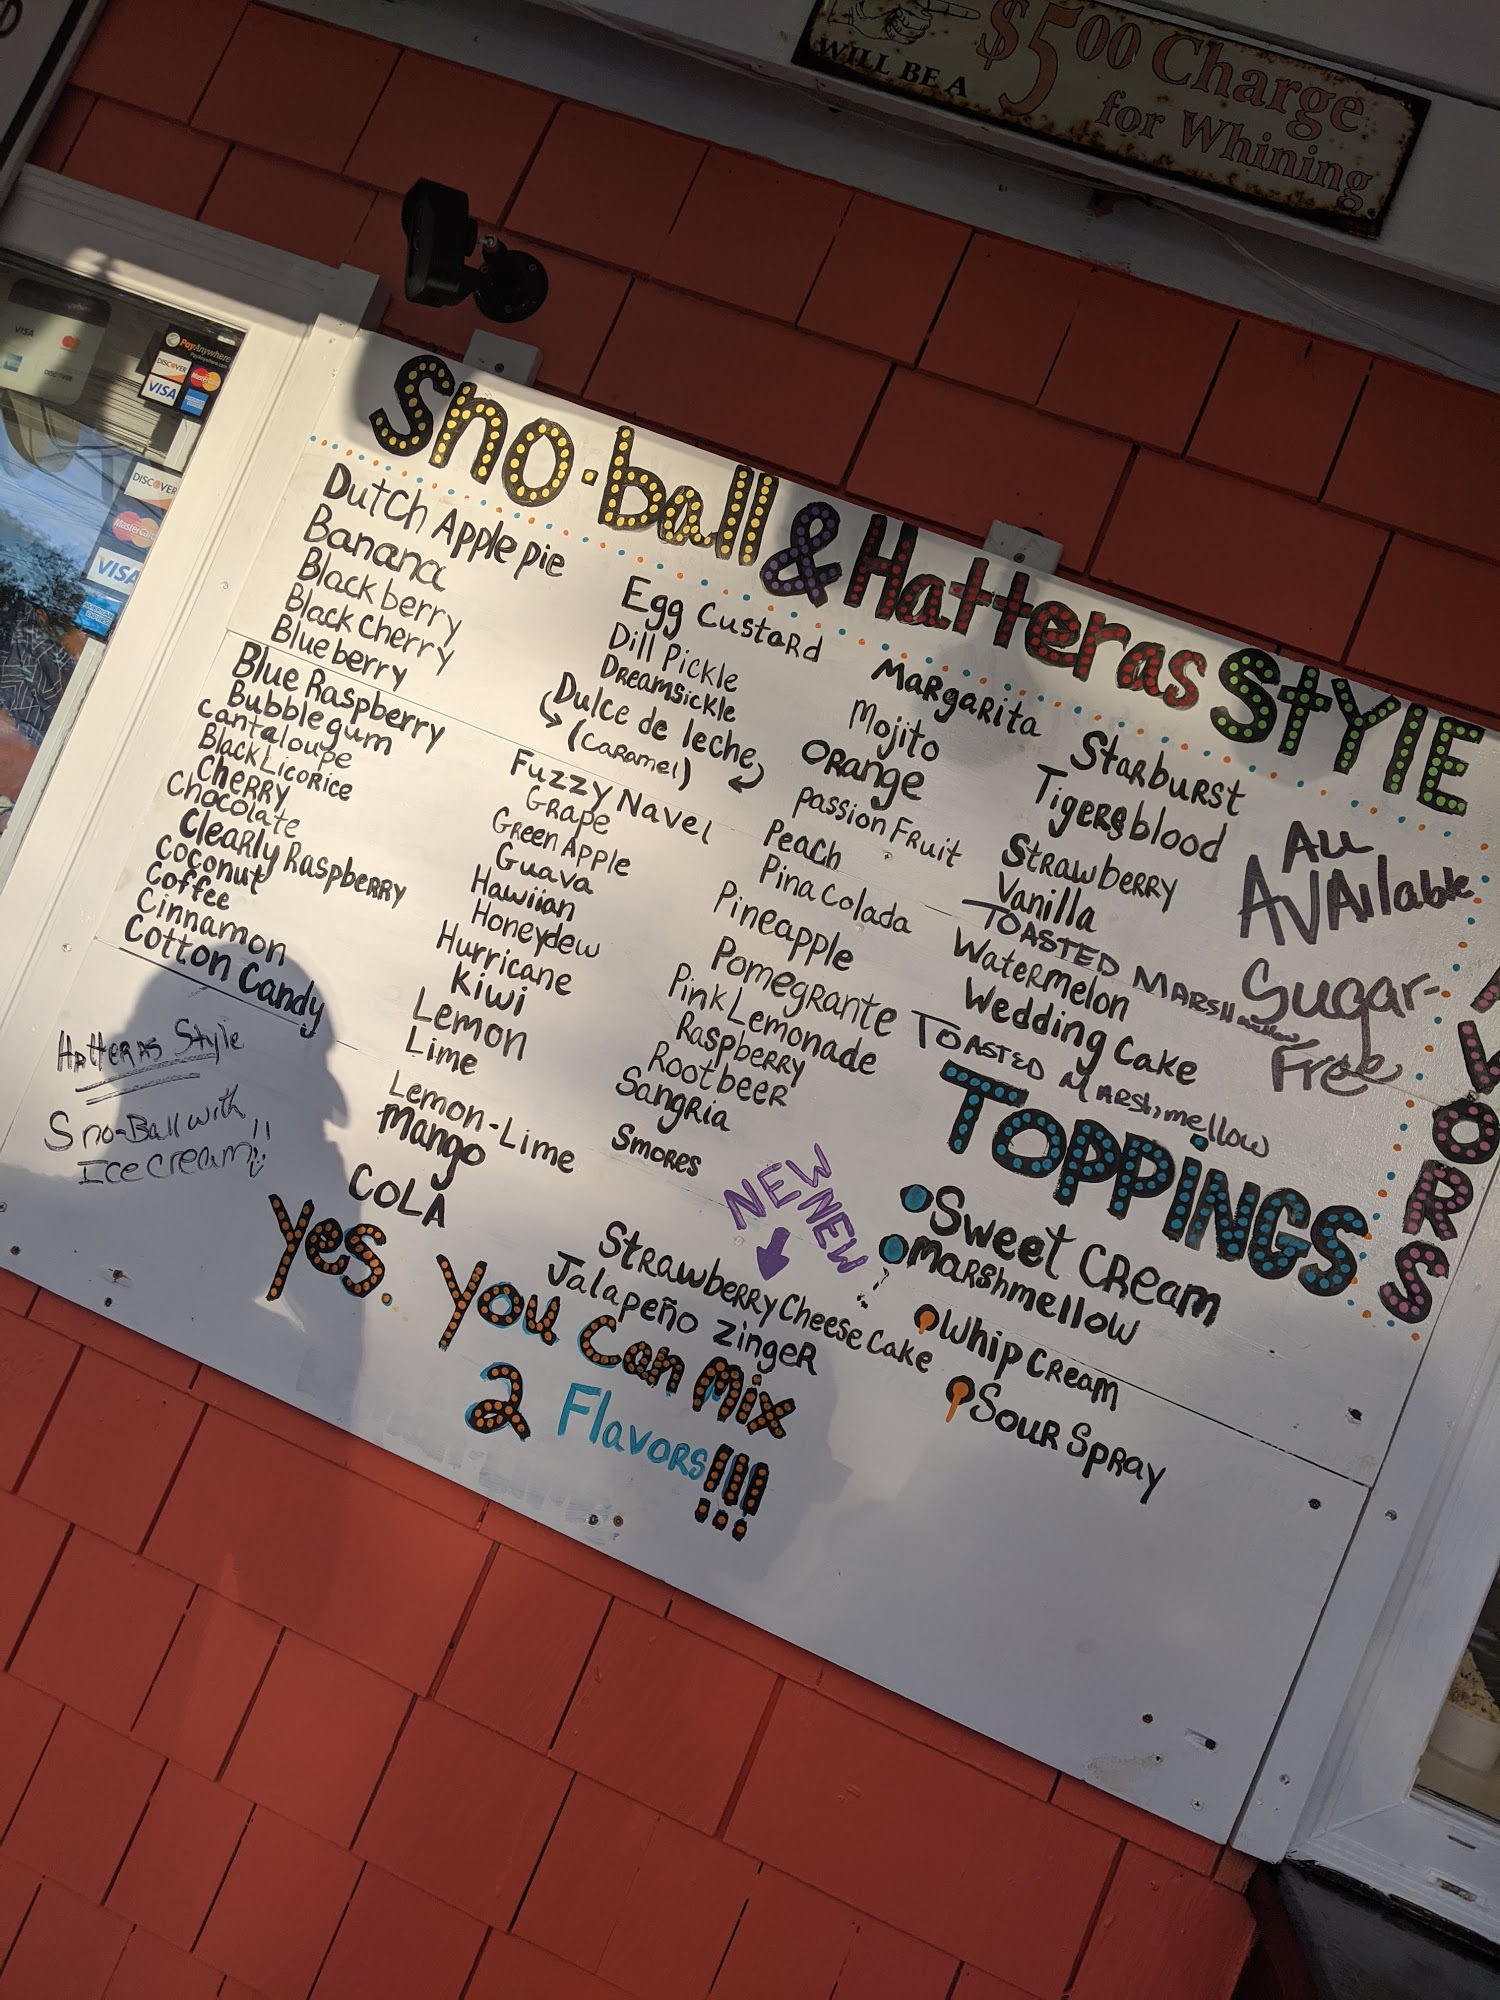 WILL BE A $5.00 Charge
for Whining
VISA
DISCOVER
PayAnywhere
DISCOVER MasterCard
VISA
DISCOVER
MasterCard
VISA
AMERICAN EXPRESS
Sno-ball & Hatteras StYlE
FlAVORS
Dutch Apple pie
Banana
Blackberry
Black Cherry
Blueberry
Blue Raspberry
Bubblegum
cantaloupe
Black Licorice
Cherry
Chocolate
Clearly Raspberry
Coconut
Coffee
Cinnamon
Cotton Candy
Hatteras Style
Sno-Ball with
Ice cream!!
Egg Custard
Dill Pickle
Dreamsickle
Dulce de leche
(caramel)
Fuzzy Navel
Grape
Green Apple
Guava
Hawiian
Honeydew
Hurricane
Kiwi
Lemon
Lime
Lemon-Lime
Mango
COLA
Margarita
Mojito
Orange
Passion Fruit
Peach
Pina Colada
Pineapple
Pomegrante
Pink Lemonade
Raspberry
Rootbeer
Sangria
Smores
NEW NEW
Strawberry Cheese Cake
Jalapeño Zinger
Starburst
Tigersblood
Strawberry
Vanilla
TOASTED MARSHmallow
Watermelon
Wedding Cake
TOASTED MARShmellow
All
AVAIlable
Sugar-
Free
TOPPiNGS
Sweet Cream
Marshmellow
Whip Cream
Sour Spray
Yes. You Can Mix
2 Flavors!!!